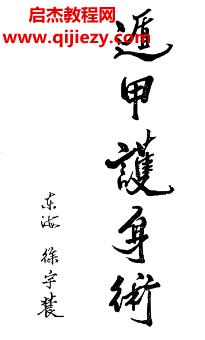 启杰教程网
www.qijiezy.com
遁甲護身術
东海 徐宇辳